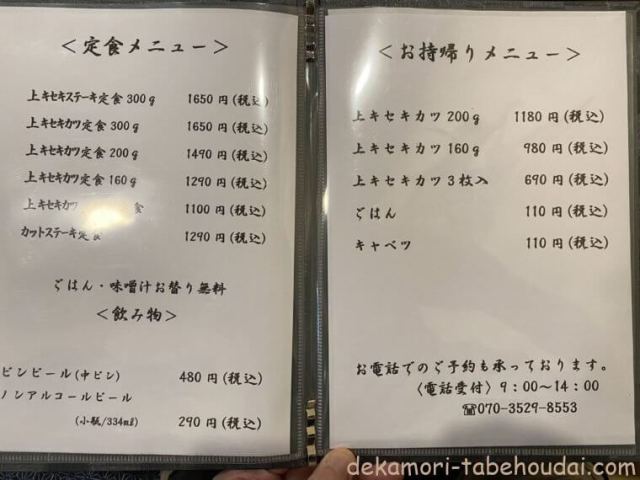 ＜定食メニュー＞
上キセキステーキ定食 300g 1650円(税込)
上キセキカツ定食 300g 1650円(税込)
上キセキカツ定食 200g 1490円(税込)
上キセキカツ定食 160g 1290円(税込)
上キセキカツ 食 1100円(税込)
カットステーキ定食 1290円(税込)
ごはん・味噌汁お替り無料
＜飲み物＞
ビンビール(中ビン) 480円(税込)
ノンアルコールビール
(小瓶/334ml) 290円(税込)
＜お持帰りメニュー＞
上キセキカツ 200g 1180円(税込)
上キセキカツ 160g 980円(税込)
上キセキカツ3枚入 690円(税込)
ごはん 110円(税込)
キャベツ 110円(税込)
お電話でのご予約も承っております。
〈電話受付〉9：00〜14：00
☎070-3529-8553
dekamori-tabehoudai.com